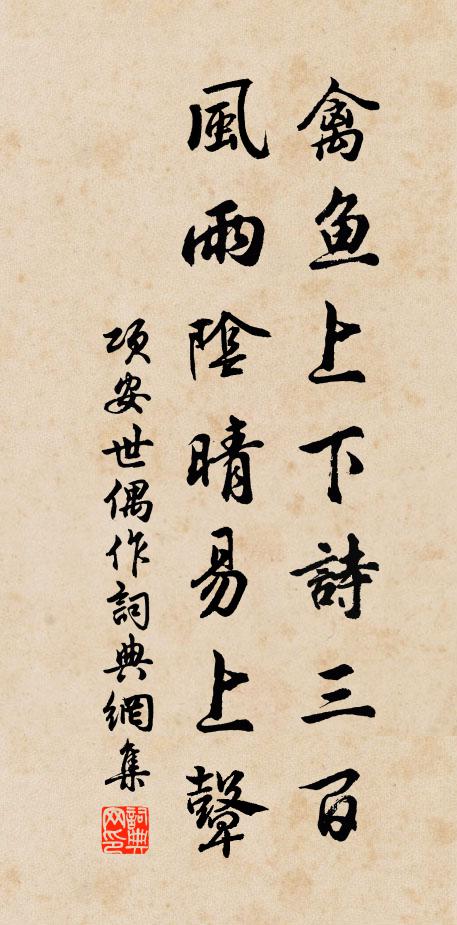 禽魚上下詩三百
風雨陰晴易上聲
項安世偶作詞典網集
詞典
网印